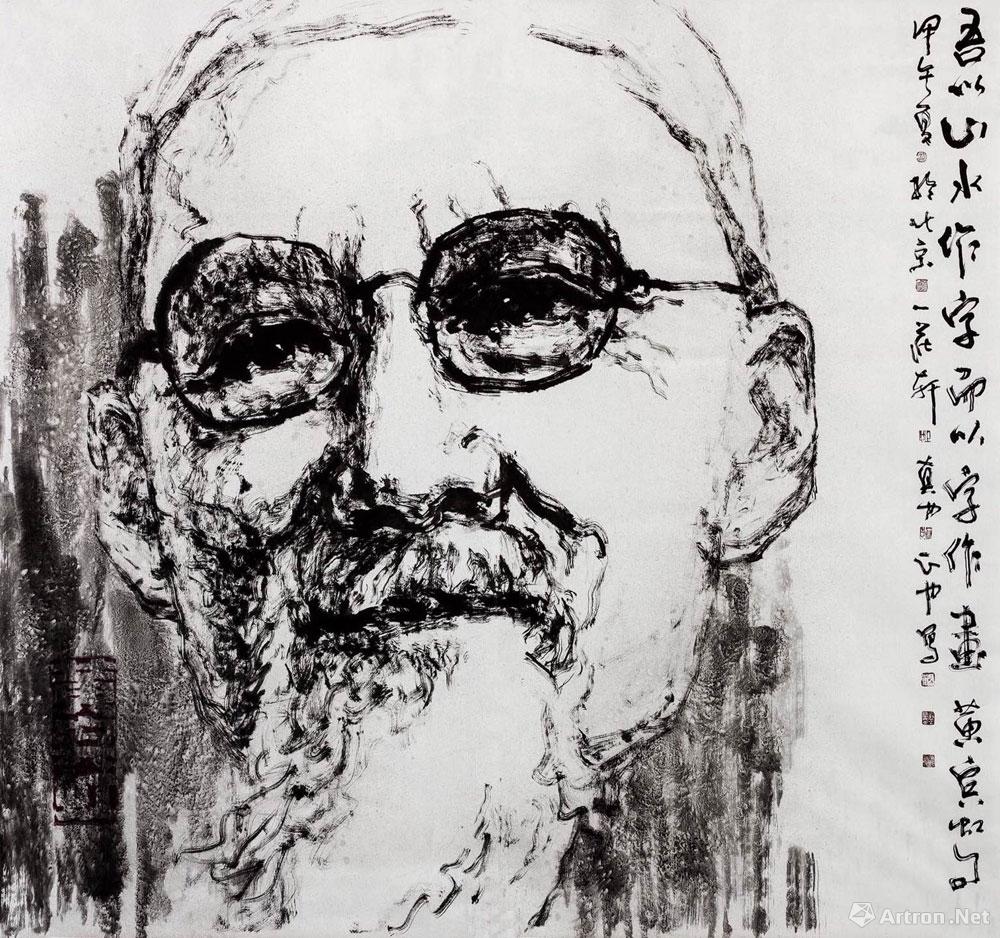 吾以山水作字而以字作畫 黄宾虹句
甲午夏於北京一莊轩
Artron.Net